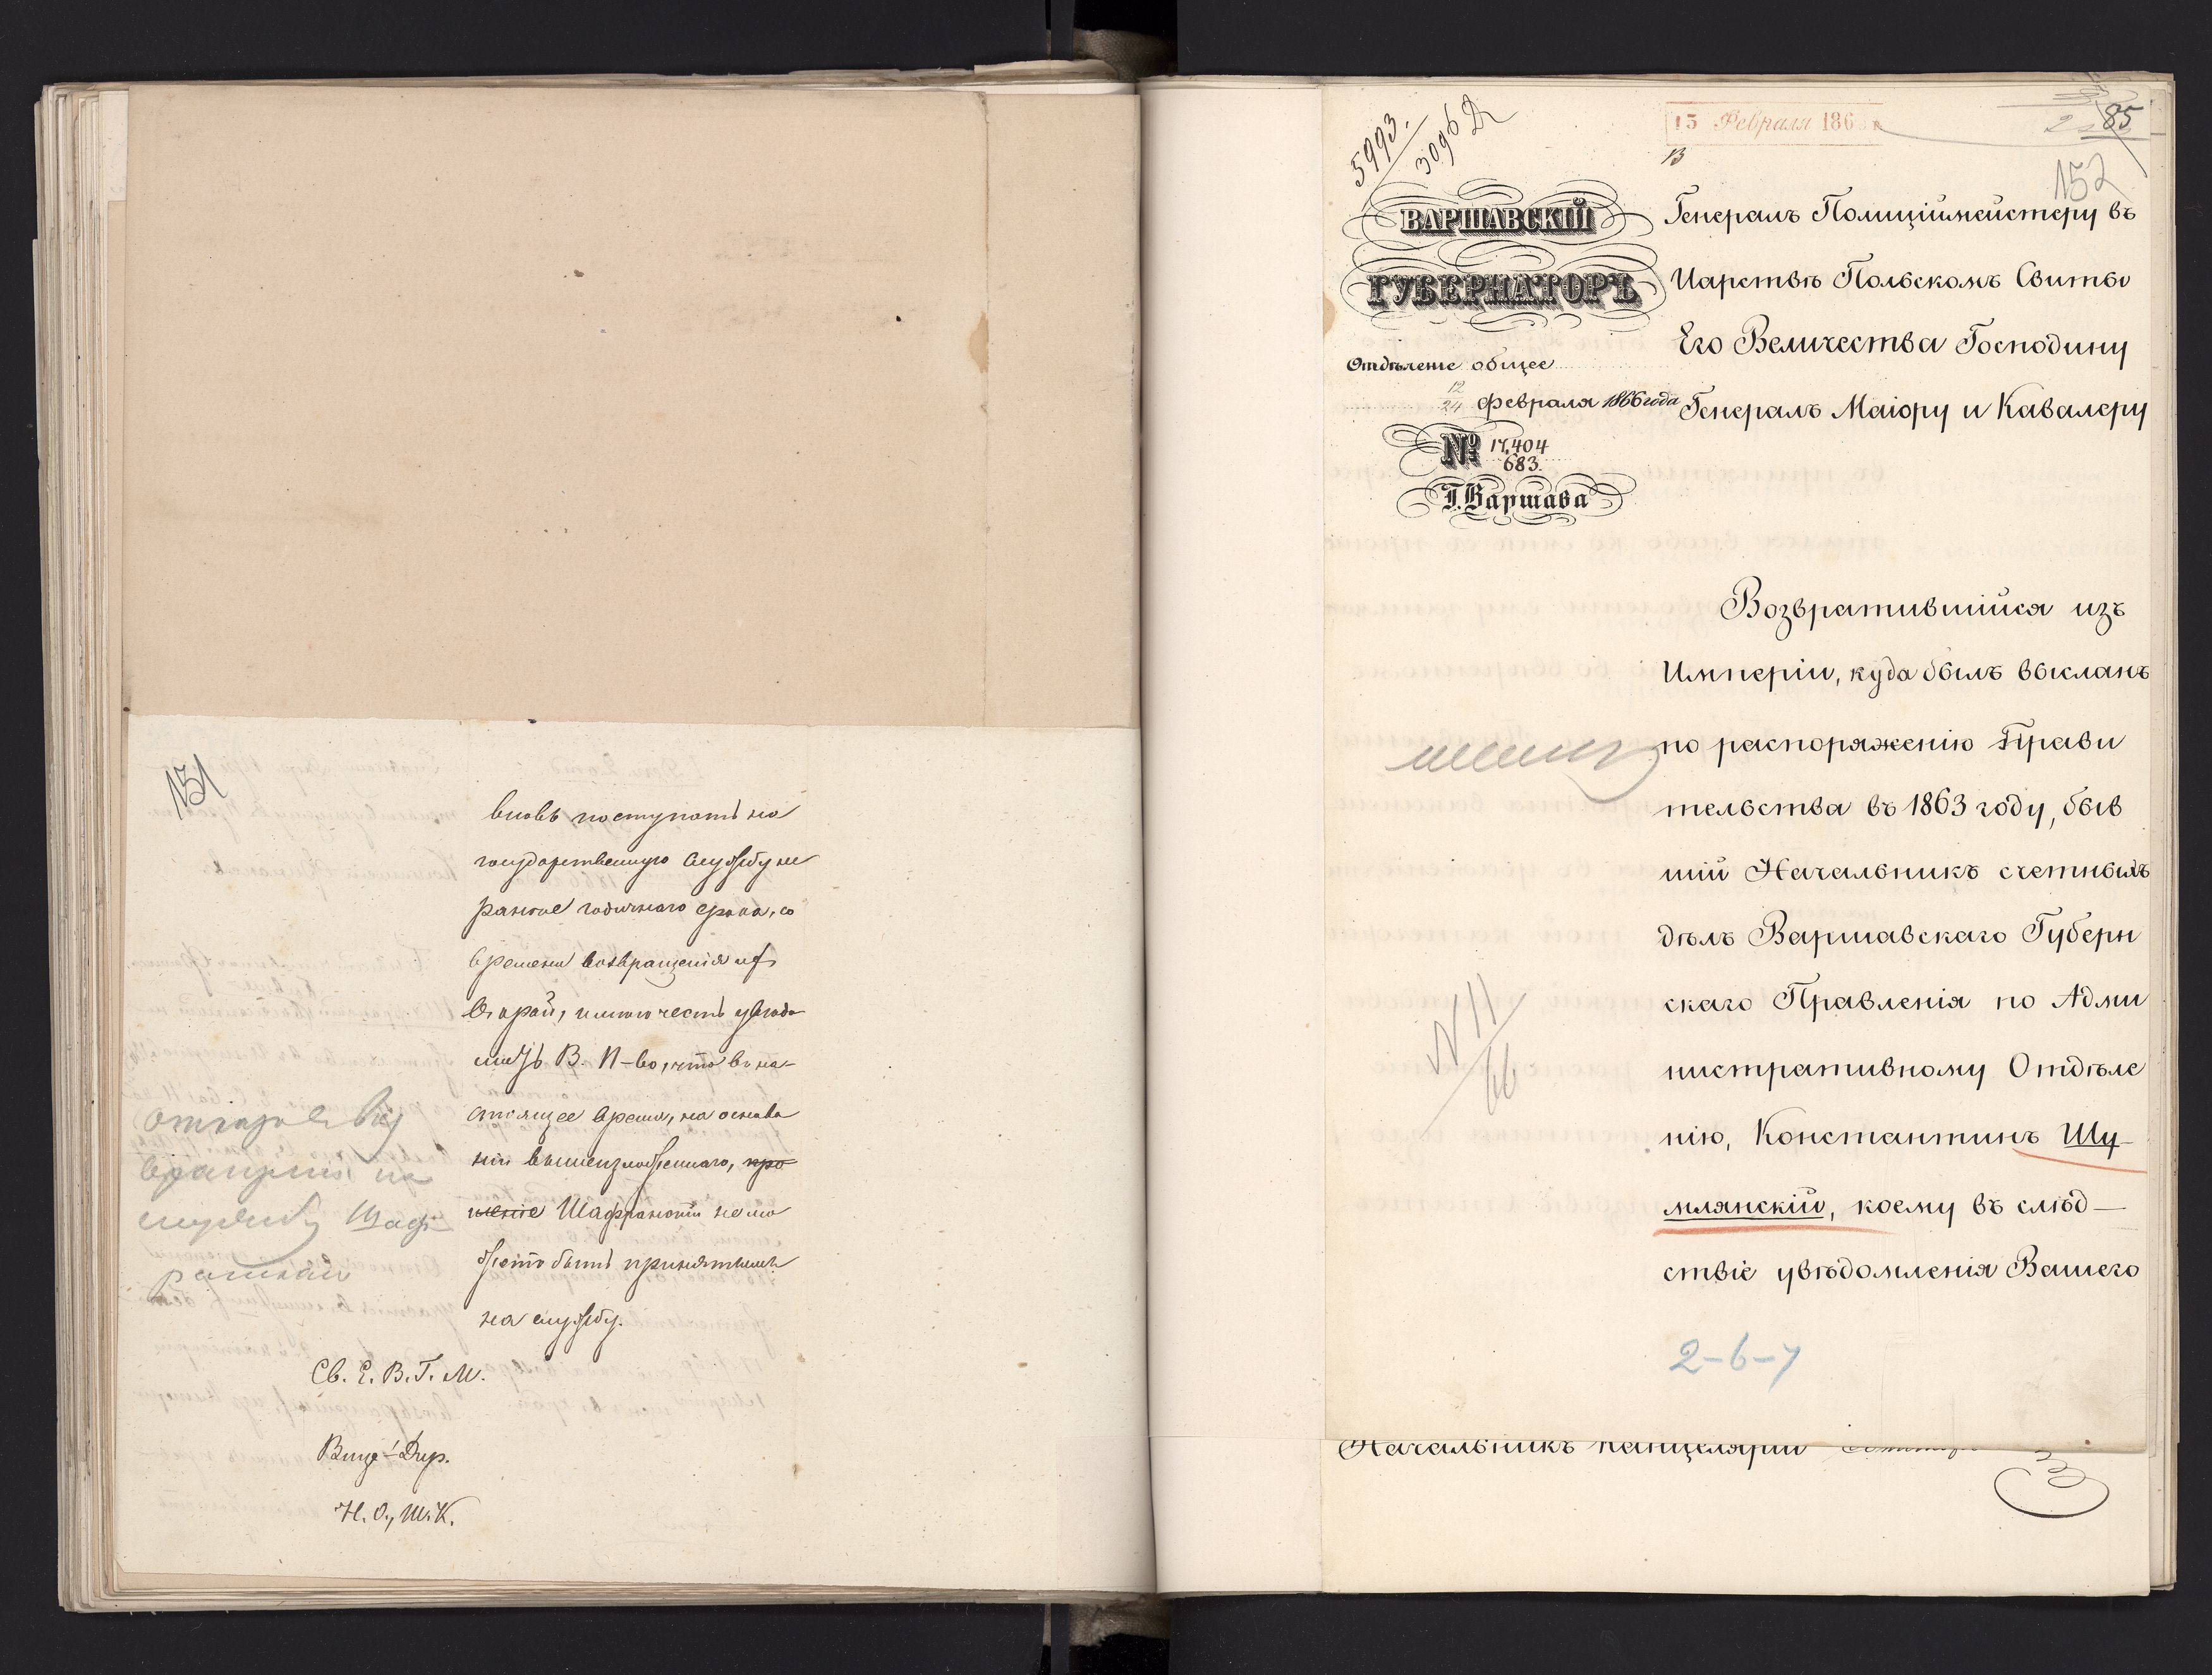 151
вновь поступать на
государственную службу не
ранее годичнаго срока, со
времени возвращенія ихъ
въ край, имею честь увѣдо
мить В. П-во, что въ на-
стоящее время, на основа
ніи вышеизложеннаго, про
шеніе Шафранскій не мо
жетъ быть принятымъ
на службу.
Св. Е. В. Г. М.
Вице-Дир.
Н. О., Ш. К.
15 Февраля 186
85
152
5993.
3096
13
ВАРШАВСКІЙ
ГУБЕРНАТОРЪ
Отдѣленіе общее
12
24 Февраля 1866 года
№ 17,404
683.
Г. Варшава
Генералъ Полиціймейстеру въ
Царствѣ Польскомъ Свиты
Его Величества Господину
Генералъ Маіору и Кавалеру
Возвратившійся изъ
Имперіи, куда былъ высланъ
по распоряженію Прави
тельства въ 1863 году, быв
шій Начальникъ счетныхъ
дѣлъ Варшавскаго Губерн
скаго Правленія по Адми
нистративному Отдѣле
нію, Константинъ Шу-
млянскій, коему въ слѣд-
ствіе увѣдомленія Вашего
N 11
66
2-6-7
Начальникъ Канцеляріи